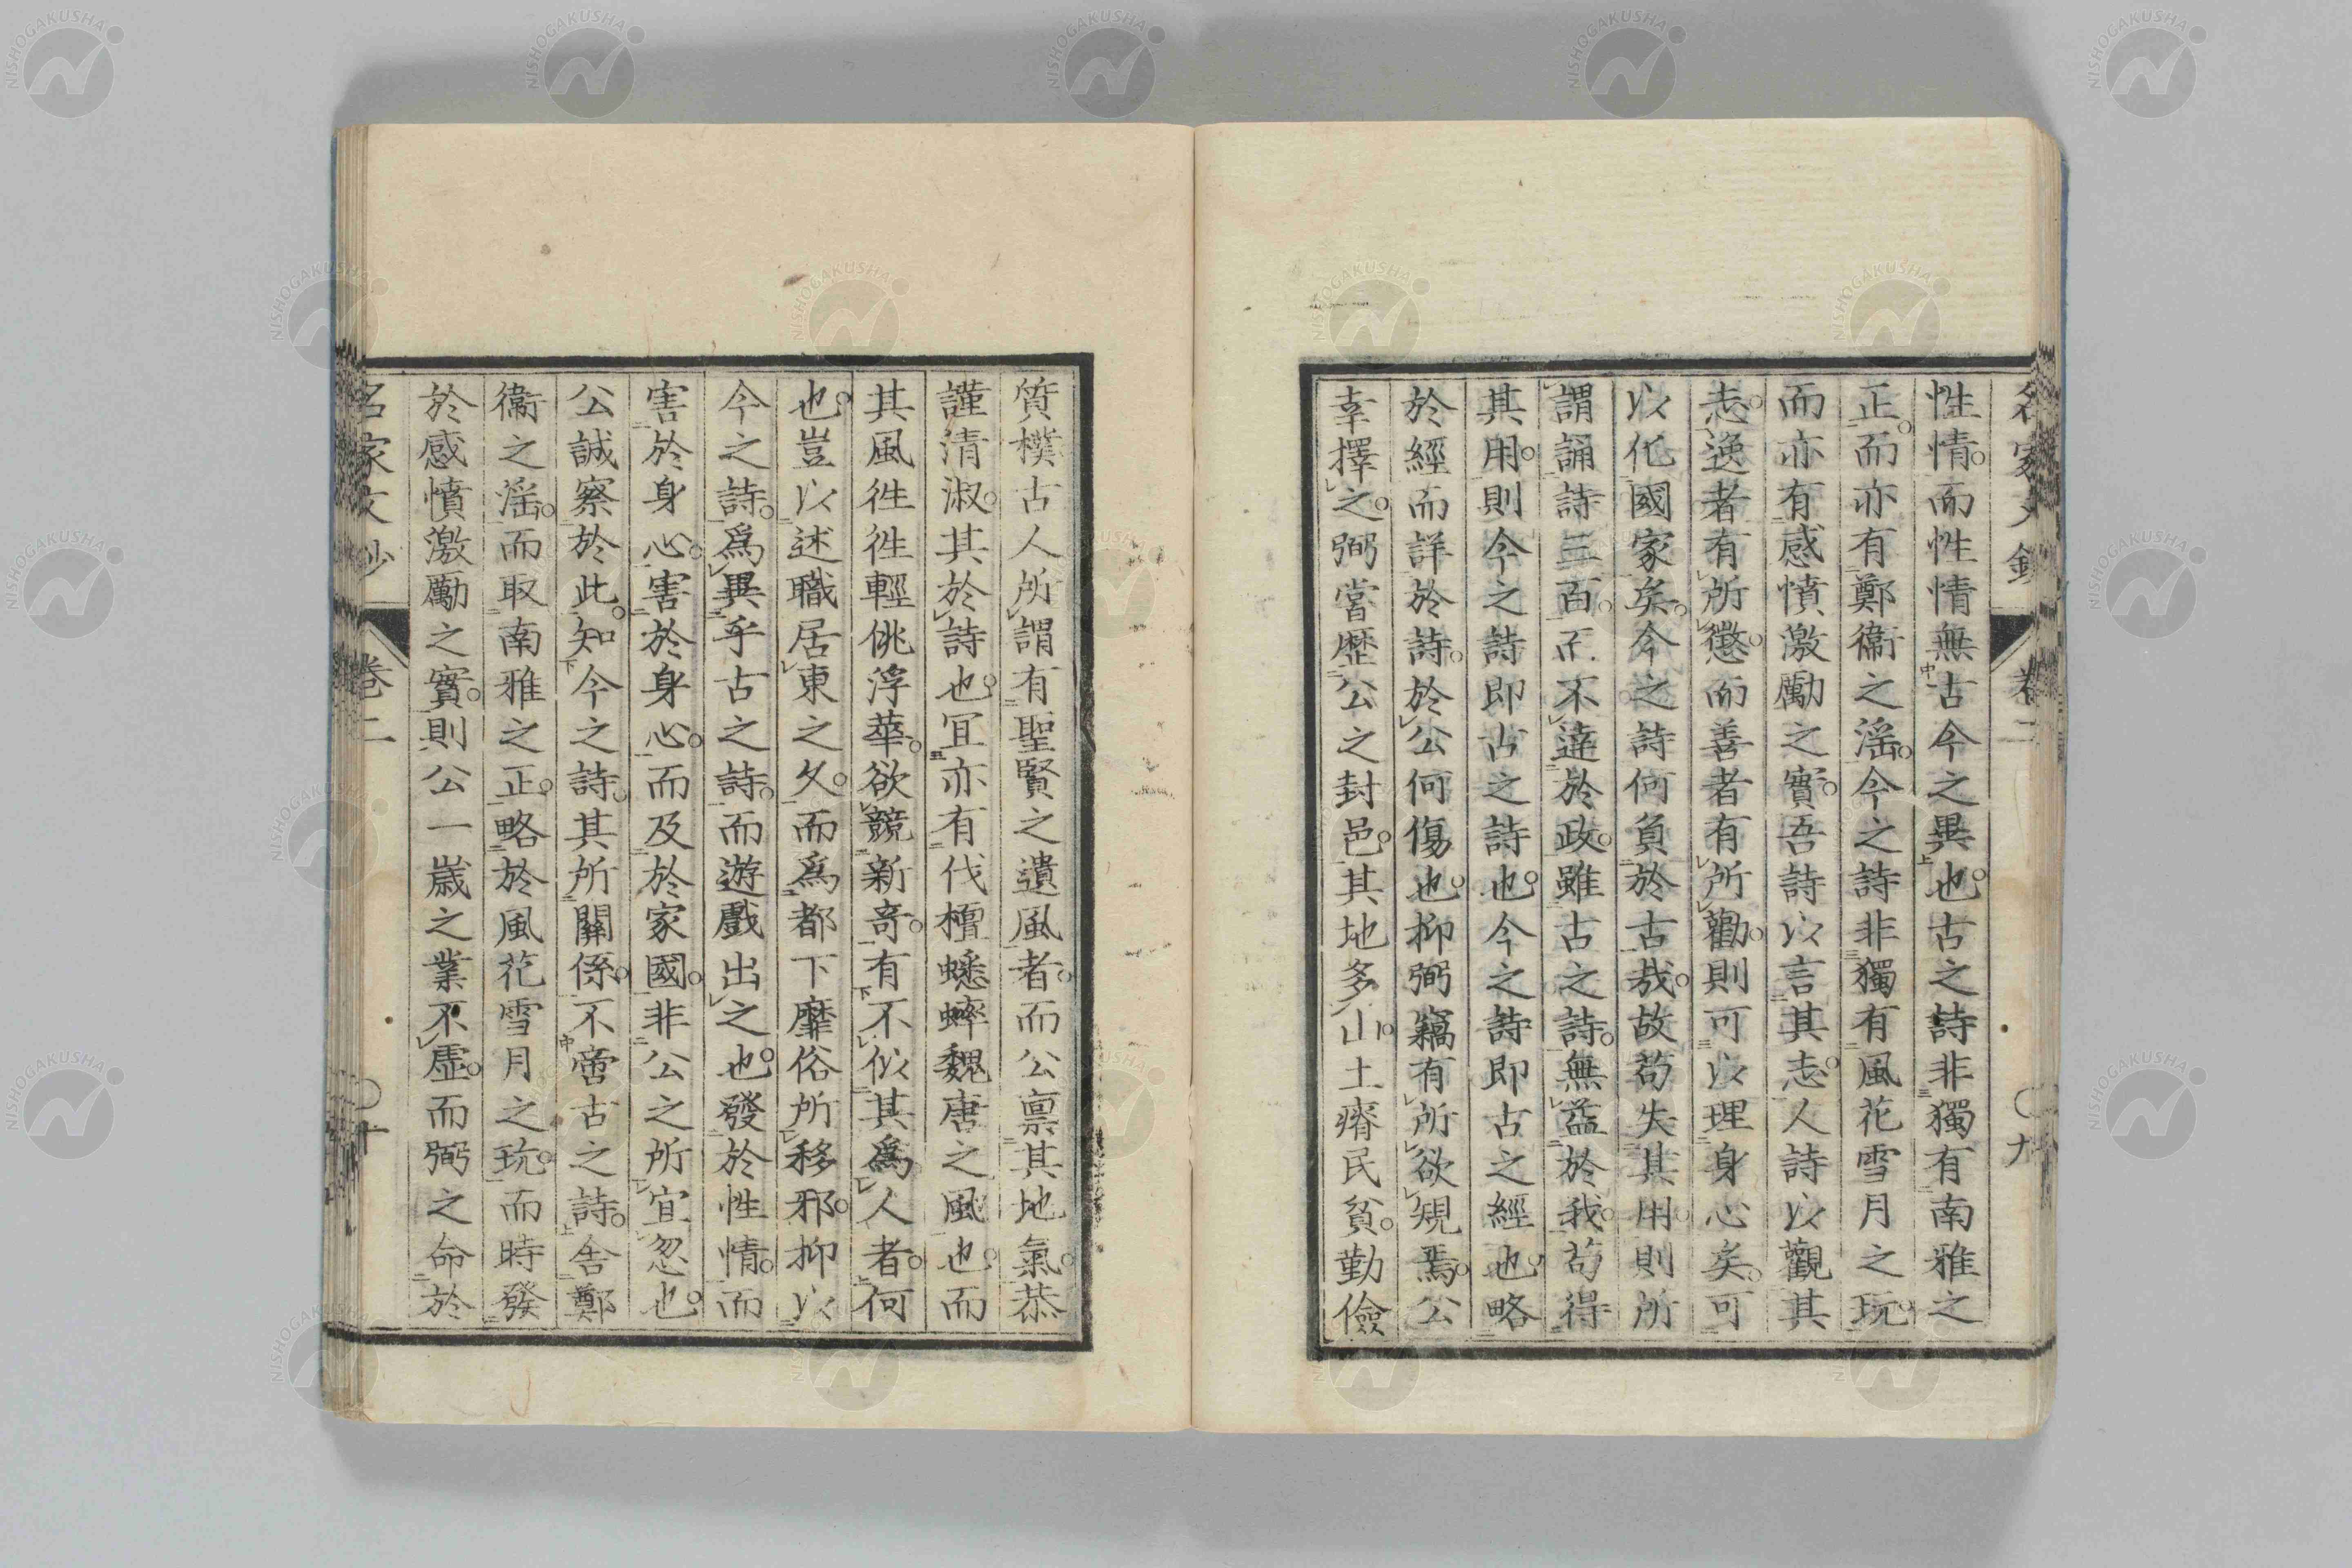 名家文鈔 卷二 〇九
性情。而性情無古今之異也。古之詩非獨有南雅之
正。而亦有鄭衞之淫。今之詩非獨有風花雪月之玩。
而亦有感憤激勵之實。吾詩以言其志。人詩以觀其
志。逸者有所懲。而善者有所勸。則可以理身心矣。可
以化國家矣。今之詩何負於古哉。故苟失其用。則所
謂誦詩三百。而不達於政。雖古之詩。無益於我。苟得
其用。則今之詩即古之詩也。今之詩即古之經也。略
於經而詳於詩。於公何傷也。抑弼竊有所欲規焉。公
幸擇之。弼嘗歷公之封邑。其地多山。土瘠民貧。勤儉
質樸古人所謂有聖賢之遺風者。而公稟其地氣。恭
謹清淑。其於詩也。宜亦有伐檀蟋蟀魏唐之風也。而
其風徃徃輕佻浮華。欲競新奇。有不似其爲人者。何
也。豈以述職居東之久。而爲都下靡俗所移邪。抑以
今之詩。爲異乎古之詩。而遊戲出之也。發於性情。而
害於身心。害於身心。而及於家國。非公之所宜忽也。
公誠察於此。知今之詩。其所關係。不啻古之詩。舍鄭
衞之淫。而取南雅之正。略於風花雪月之玩。而時發
於感憤激勵之實。則公一歲之業不虛。而弼之命於
名家文鈔 卷二 〇十
NISHOGAKUSHA